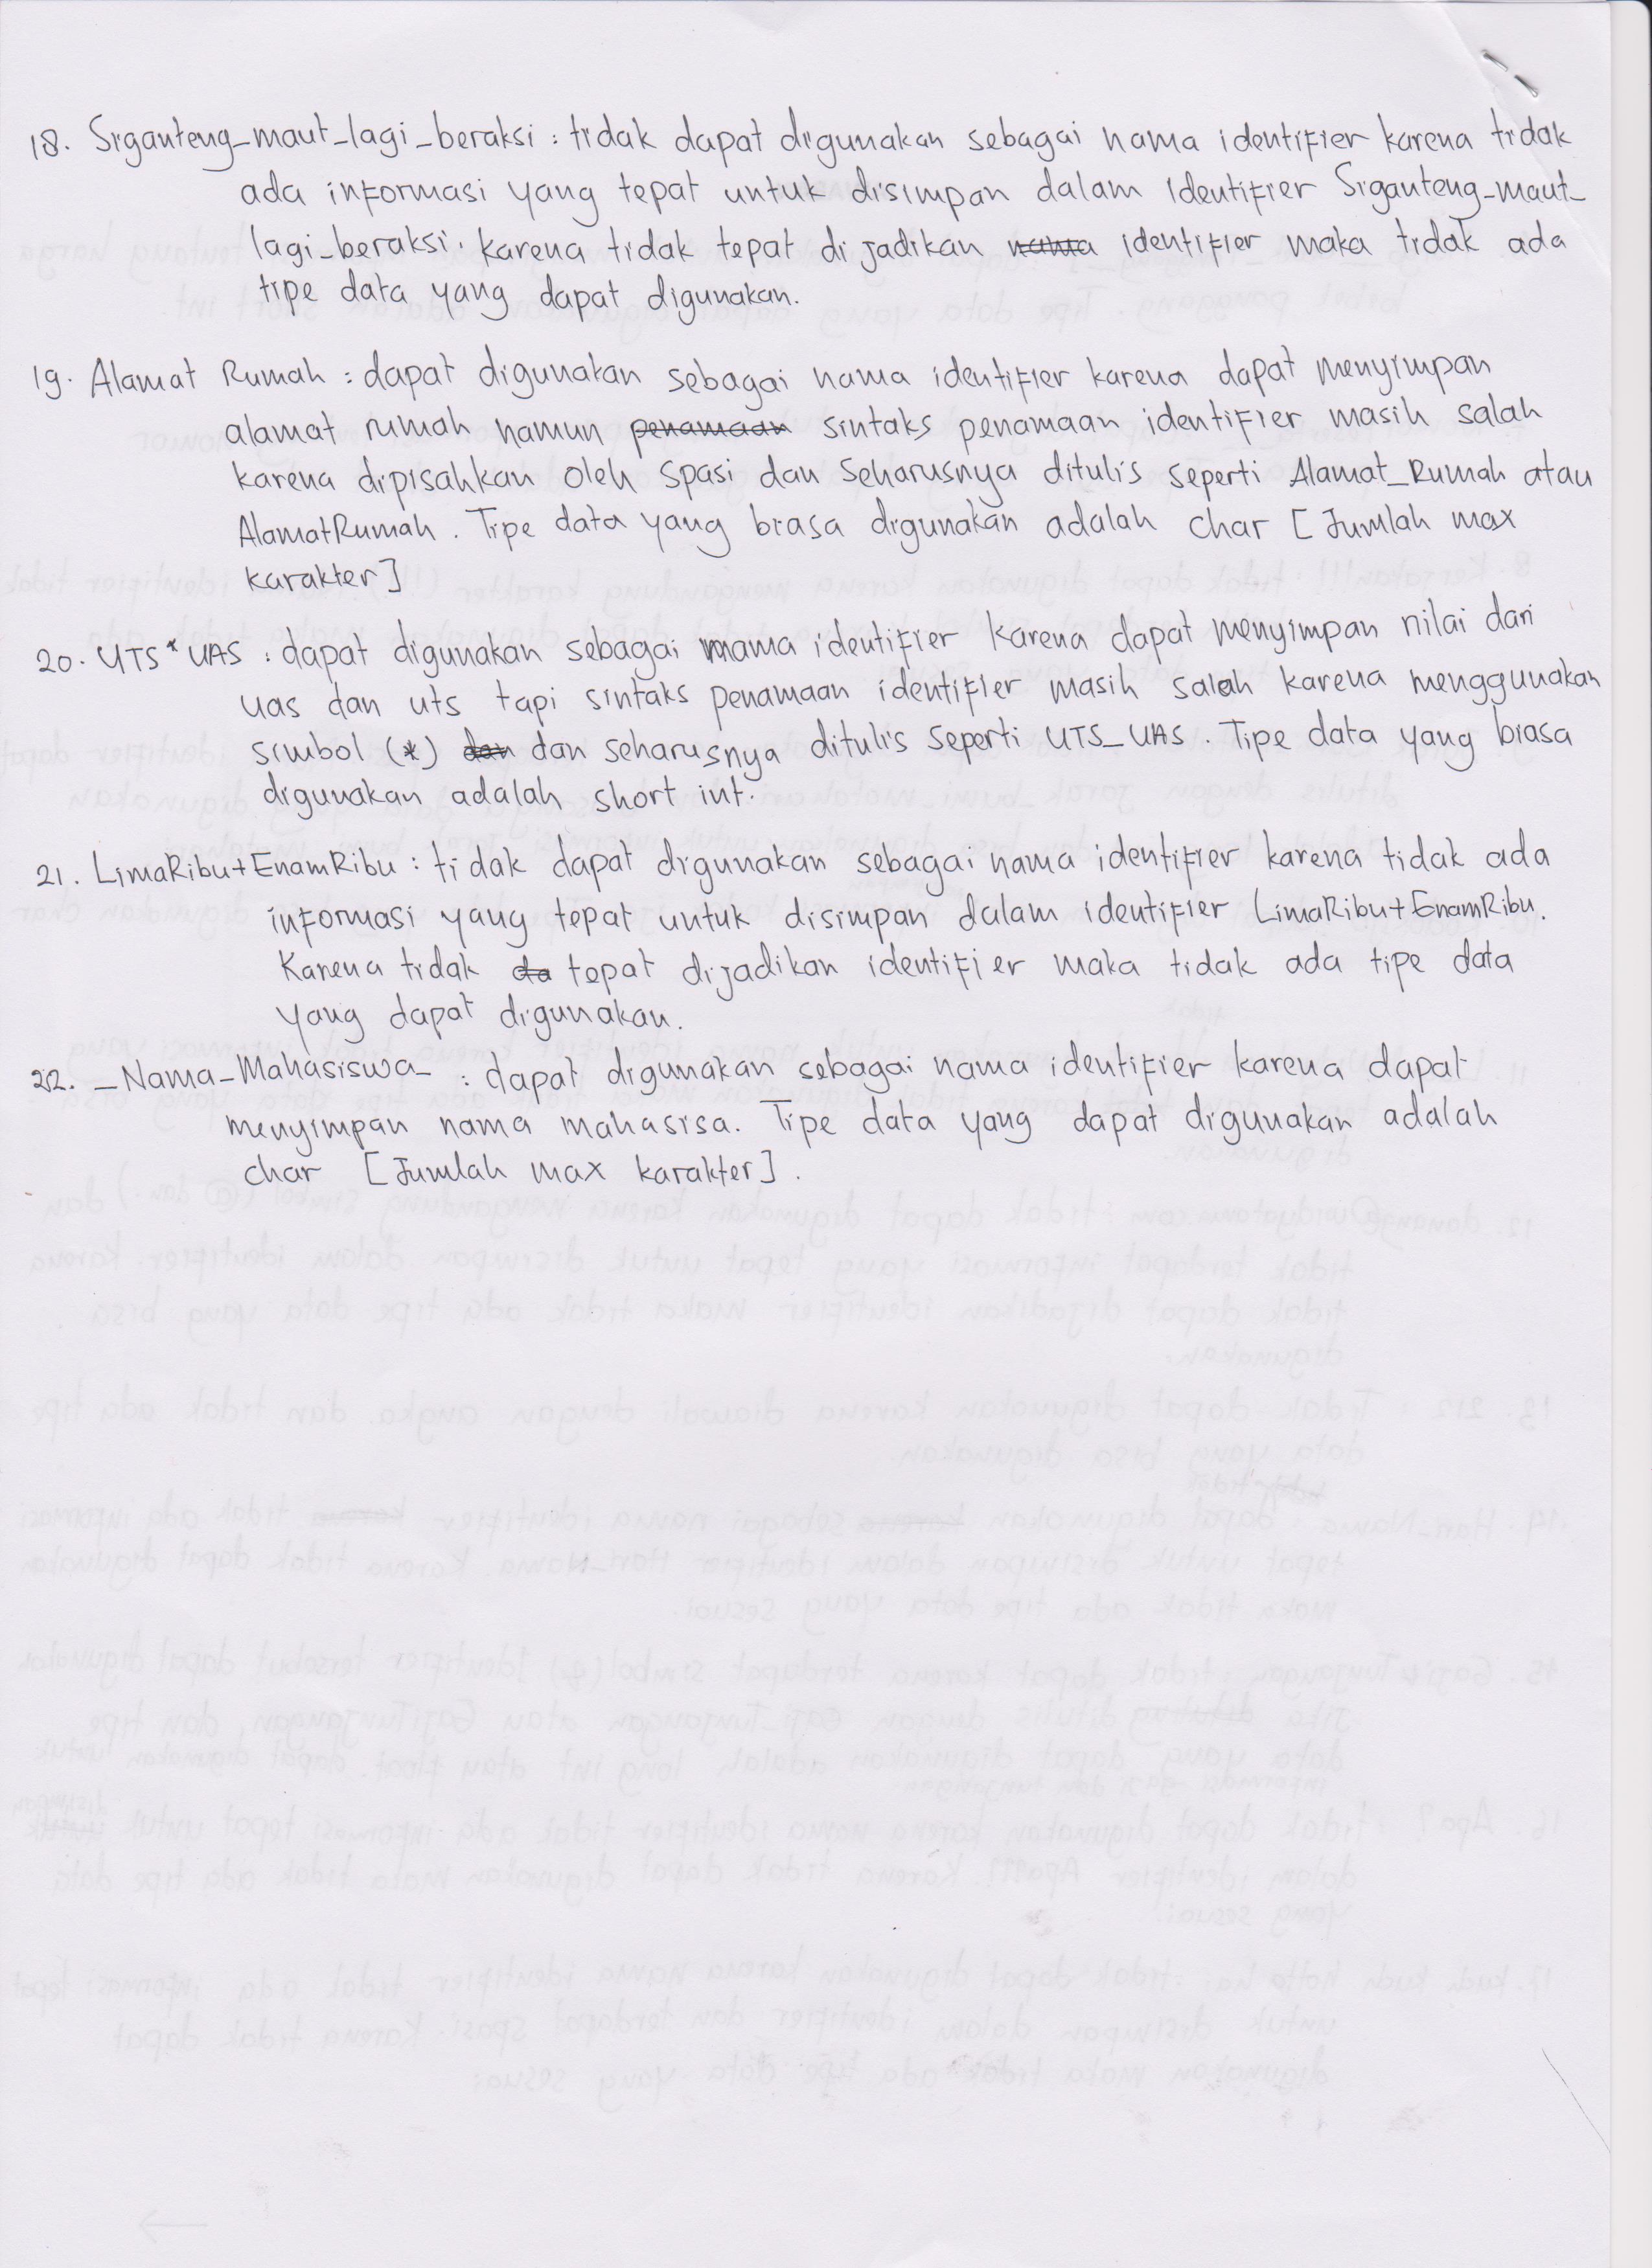 18. Siganteng_maut_lagi_beraksi : tidak dapat digunakan sebagai nama identifier karena tidak
ada informasi yang tepat untuk disimpan dalam identifier Siganteng_maut_
lagi_beraksi. karena tidak tepat di jadikan nama identifier maka tidak ada
tipe data yang dapat digunakan.
19. Alamat Rumah : dapat digunakan sebagai nama identifier karena dapat menyimpan
alamat rumah namun penamaan sintaks penamaan identifier masih salah
karena dipisahkan oleh spasi dan seharusnya ditulis seperti Alamat_Rumah atau
AlamatRumah. Tipe data yang biasa digunakan adalah char [Jumlah max
karakter]
20. UTS*UAS : dapat digunakan sebagai nama identifier karena dapat menyimpan nilai dari
uas dan uts tapi sintaks penamaan identifier masih salah karena menggunakan
simbol (*) dan dan seharusnya ditulis seperti UTS_UAS. Tipe data yang biasa
digunakan adalah short int.
21. LimaRibu+EnamRibu : tidak dapat digunakan sebagai nama identifier karena tidak ada
informasi yang tepat untuk disimpan dalam identifier LimaRibu+EnamRibu.
Karena tidak da tepat dijadikan identifier maka tidak ada tipe data
yang dapat digunakan.
22. _Nama_Mahasiswa_ : dapat digunakan sebagai nama identifier karena dapat
menyimpan nama mahasisa. Tipe data yang dapat digunakan adalah
char [Jumlah max karakter].